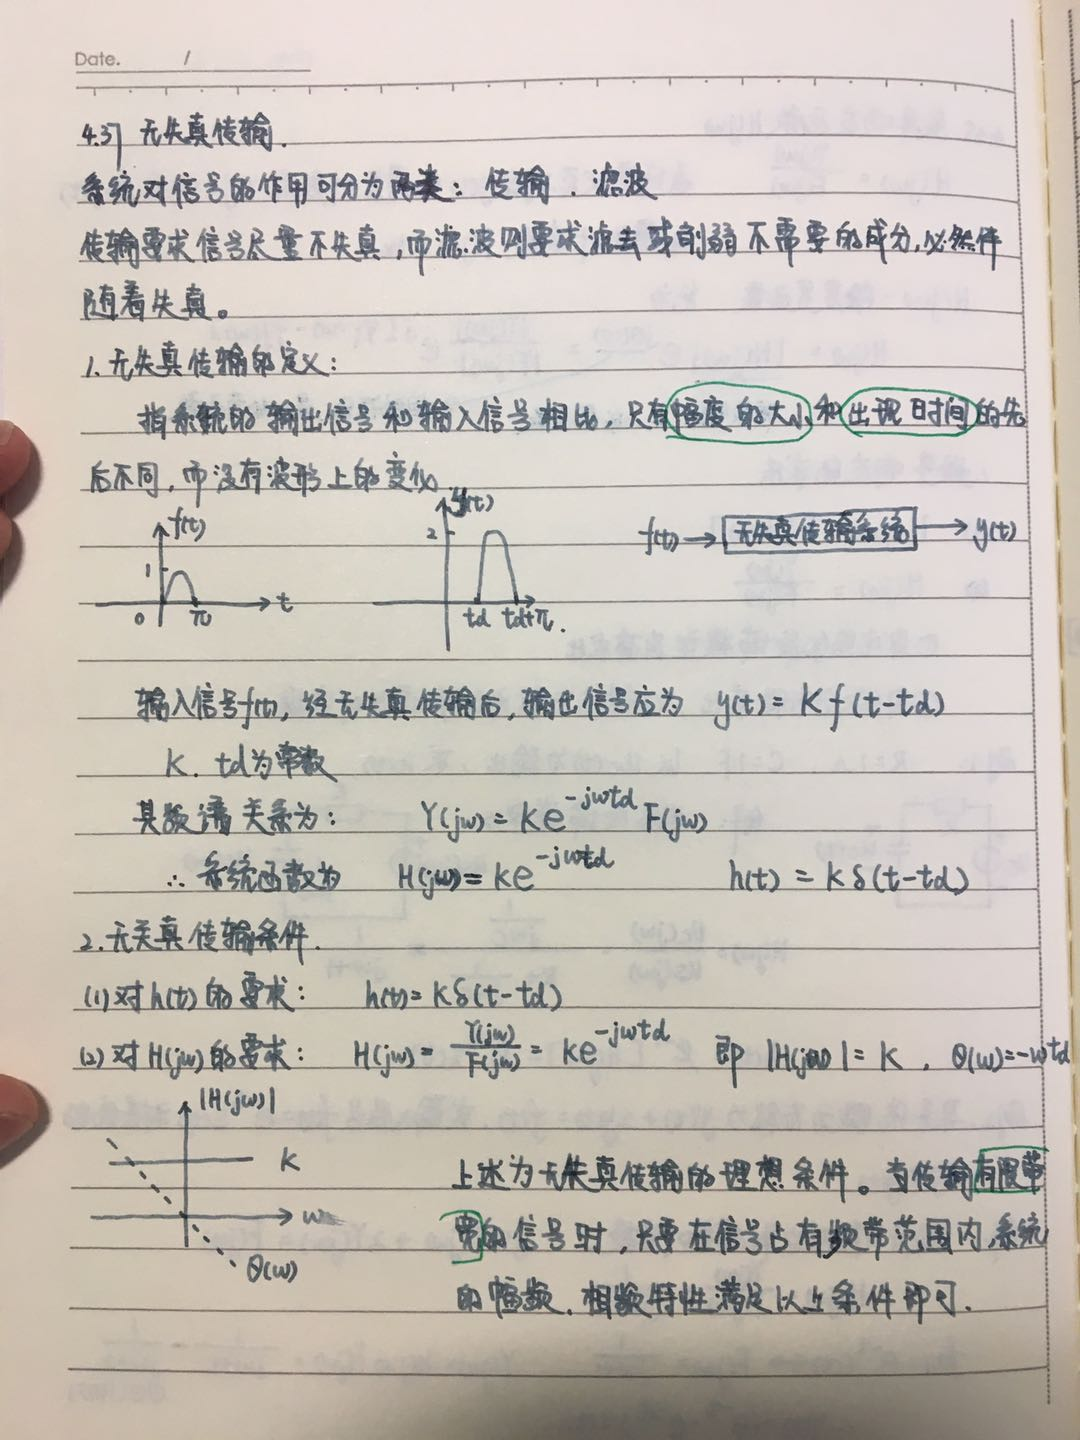 Date. /
4.37 无失真传输.
系统对信号的作用可分为两类：传输．滤波
传输要求信号尽量不失真,而滤波则要求滤去或削弱不需要的成分,必然伴
随着失真。
1.无失真传输的定义：
指系统的输出信号和输入信号相比，只有幅度的大小和出现时间的先
后不同,而没有波形上的变化.
f(t) 1 0 π t
y(t) 2 td td+π.
f(t)→ 无失真传输系统 → y(t)
输入信号f(t), 经无失真传输后,输出信号应为 y(t)=Kf(t-td)
K. td为常数
其频谱关系为： Y(jw)=Ke^{-jwtd}F(jw)
∴ 系统函数为 H(jw)=ke^{-jwtd} h(t)=Kδ(t-td)
2.无失真传输条件.
(1)对h(t)的要求： h(t)=Kδ(t-td)
(2)对H(jw)的要求： H(jw)=Y(jw)/F(jw)=ke^{-jwtd} 即 |H(jw)|=K , θ(w)=-wtd
|H(jw)| K w θ(w)
上述为无失真传输的理想条件。当传输有限带
宽的信号时，只要在信号占有频带范围内,系统
的幅频.相频特性满足以上条件即可.